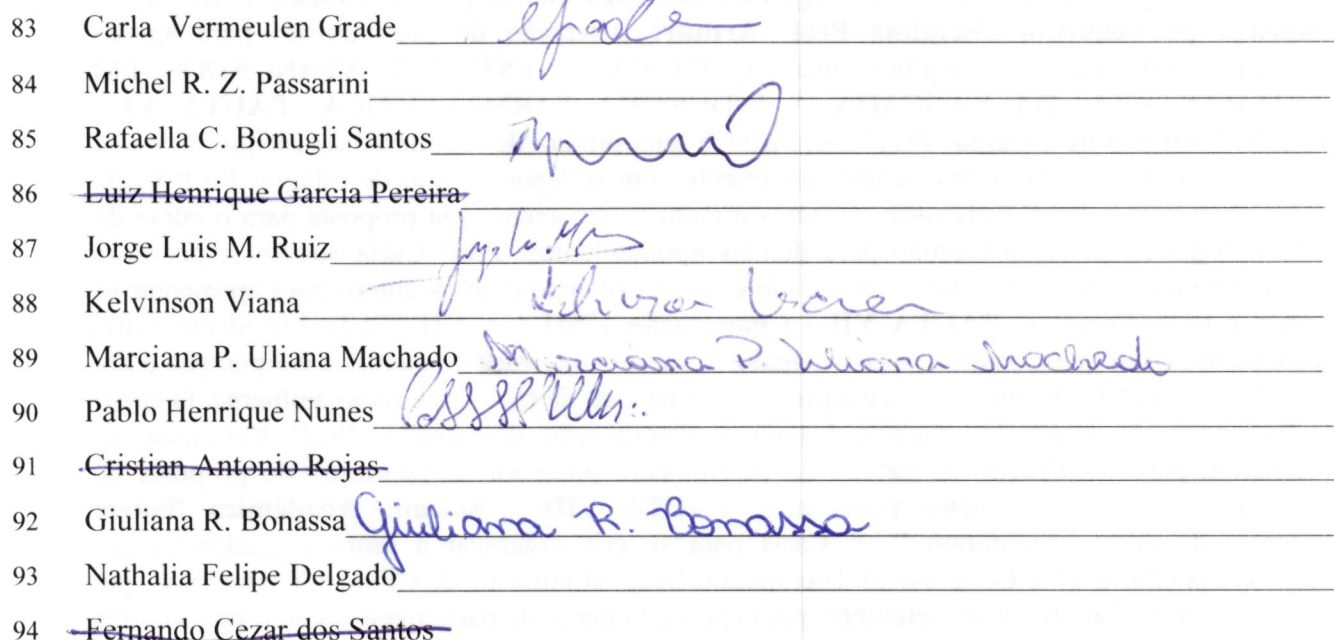 83 Carla Vermeulen Grade
84 Michel R. Z. Passarini
85 Rafaella C. Bonugli Santos
86 Luiz Henrique Garcia Pereira
87 Jorge Luis M. Ruiz
88 Kelvinson Viana Kelvinson Viana
89 Marciana P. Uliana Machado Marciana P. Uliana Machado
90 Pablo Henrique Nunes
91 Cristian Antonio Rojas
92 Giuliana R. Bonassa Giuliana R. Bonassa
93 Nathalia Felipe Delgado
94 Fernando Cezar dos Santos